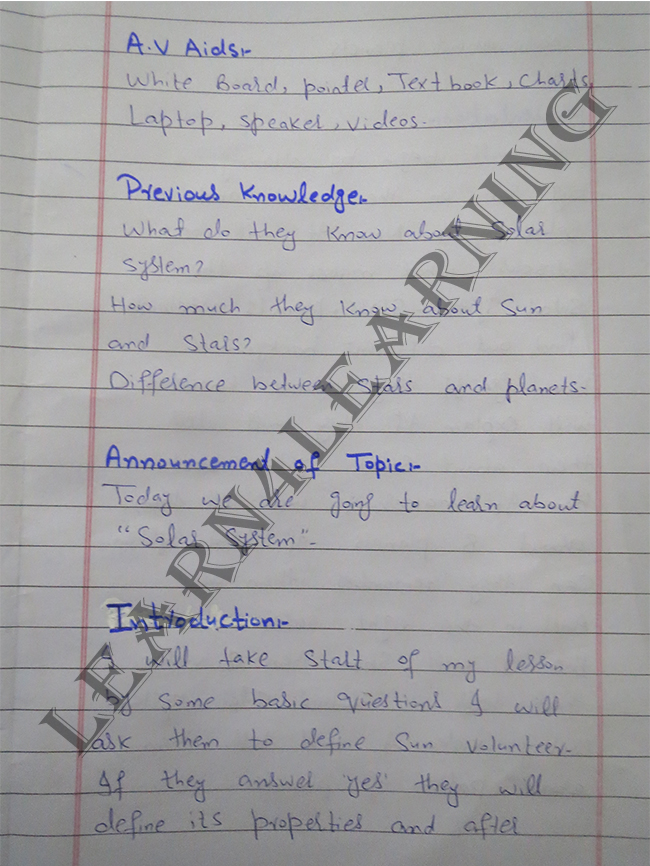 A.V Aids:-
White Board, pointer, Textbook, Charts,
Laptop, speaker, videos.
Previous Knowledge:-
What do they know about Solar
system?
How much they know about Sun
and Stars?
Difference between stars and planets.
Announcement of Topic:-
Today we are going to learn about
"Solar System".
Introduction:-
I will take start of my lesson
by some basic questions I will
ask them to define Sun volunteer.
If they answer 'yes' they will
define its properties and after
LEARN4LEARNING